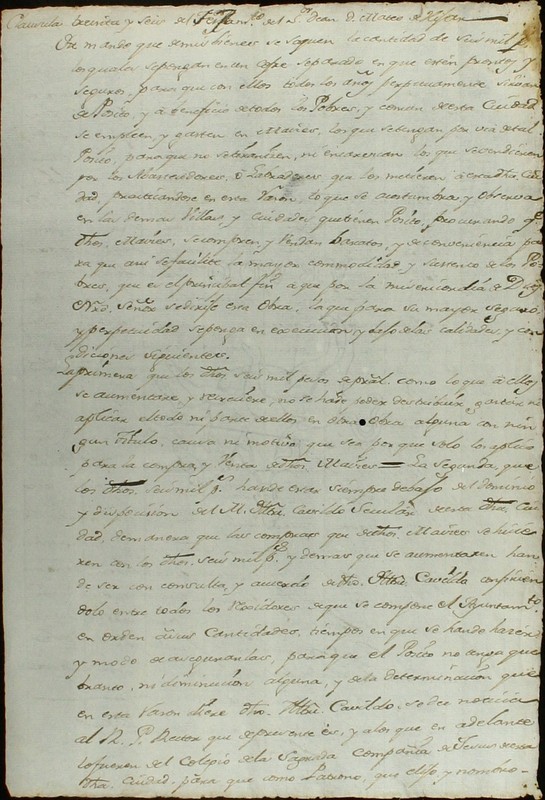 Clausula treinta y seis del Testam.to del S.r Dean D. Mateo de Hijar
Itt. mando que de mis bienes se saquen la cantidad de seis mil p.s
los quales se pongan en un cofre separado en que esten promptos, y
seguros, para que con ellos todos los años perpetuamente sirvan
de Posito, y a beneficio de todos los Pobres, y comun de esta Ciudad
se empleen, y gasten en Maises, los que se tengan por via de tal
Posito, para que no se atrasen, ni encarescan los que se vendieren
por los Abastecedores, ô Labradores que los metieren a esta dha. Ciu
dad, practicandose en esta razon lo que se acostumbra, y observa
en las demas Villas, y Ciudades que tienen Posito, procurando q.e
dhos. Maises, se compren, y vendan baratos, y de conveniencia pa
ra que assi se facilite la mayor commodidad, y sustento de los Po
bres, que es el principal fin a que por la misericordia de Dios
Nro. Señor se dirije esta Obra, la que para su mayor seguro,
y perpetuidad se ponga en execucion, y bajo de las calidades, y con
diciones siguientes.
La primera que los dhos. seis mil pesos de pral. como lo que a ellos
se aumentare, y creciere, no se han de poder distribuir, gastar, ni
aplicar el todo ni parte de ellos en otra Obra alguna con nin
gun titulo, causa ni motivo que sea por que solo los aplico
para la compra, y Venta de dhos. Maises — La segunda, que
los dhos. seis mil p.s han de estar siempre debajo del dominio
y disposicion del M. Iltre. Cavildo Secular de esta dha. Ciu
dad, de manera que las compras que de dhos. Maises se hicie
ren con los dhos. seis mil p.s y demas que se aumentaren han
de ser con consulta, y acuerdo de dho. Iltre. Cavildo confirien
dolo entre todos los Regidores de que se compone el Ayuntam.to
en orden â sus Cantidades, tiempos en que se han de hacer
y modo de asegurarlas, para que el Posito no tenga que
branto, ni diminucion alguna, y de la determinacion que
en esta razon diere dho. Iltre. Cavildo, se dee noticia
al R. P. Rector que de presente es, y a los que en adelante
lo fueren del Colegio de la Sagrada Compañia de Jesus de esta
dha. Ciudad, para que como Patrono, que elijo, y nombro